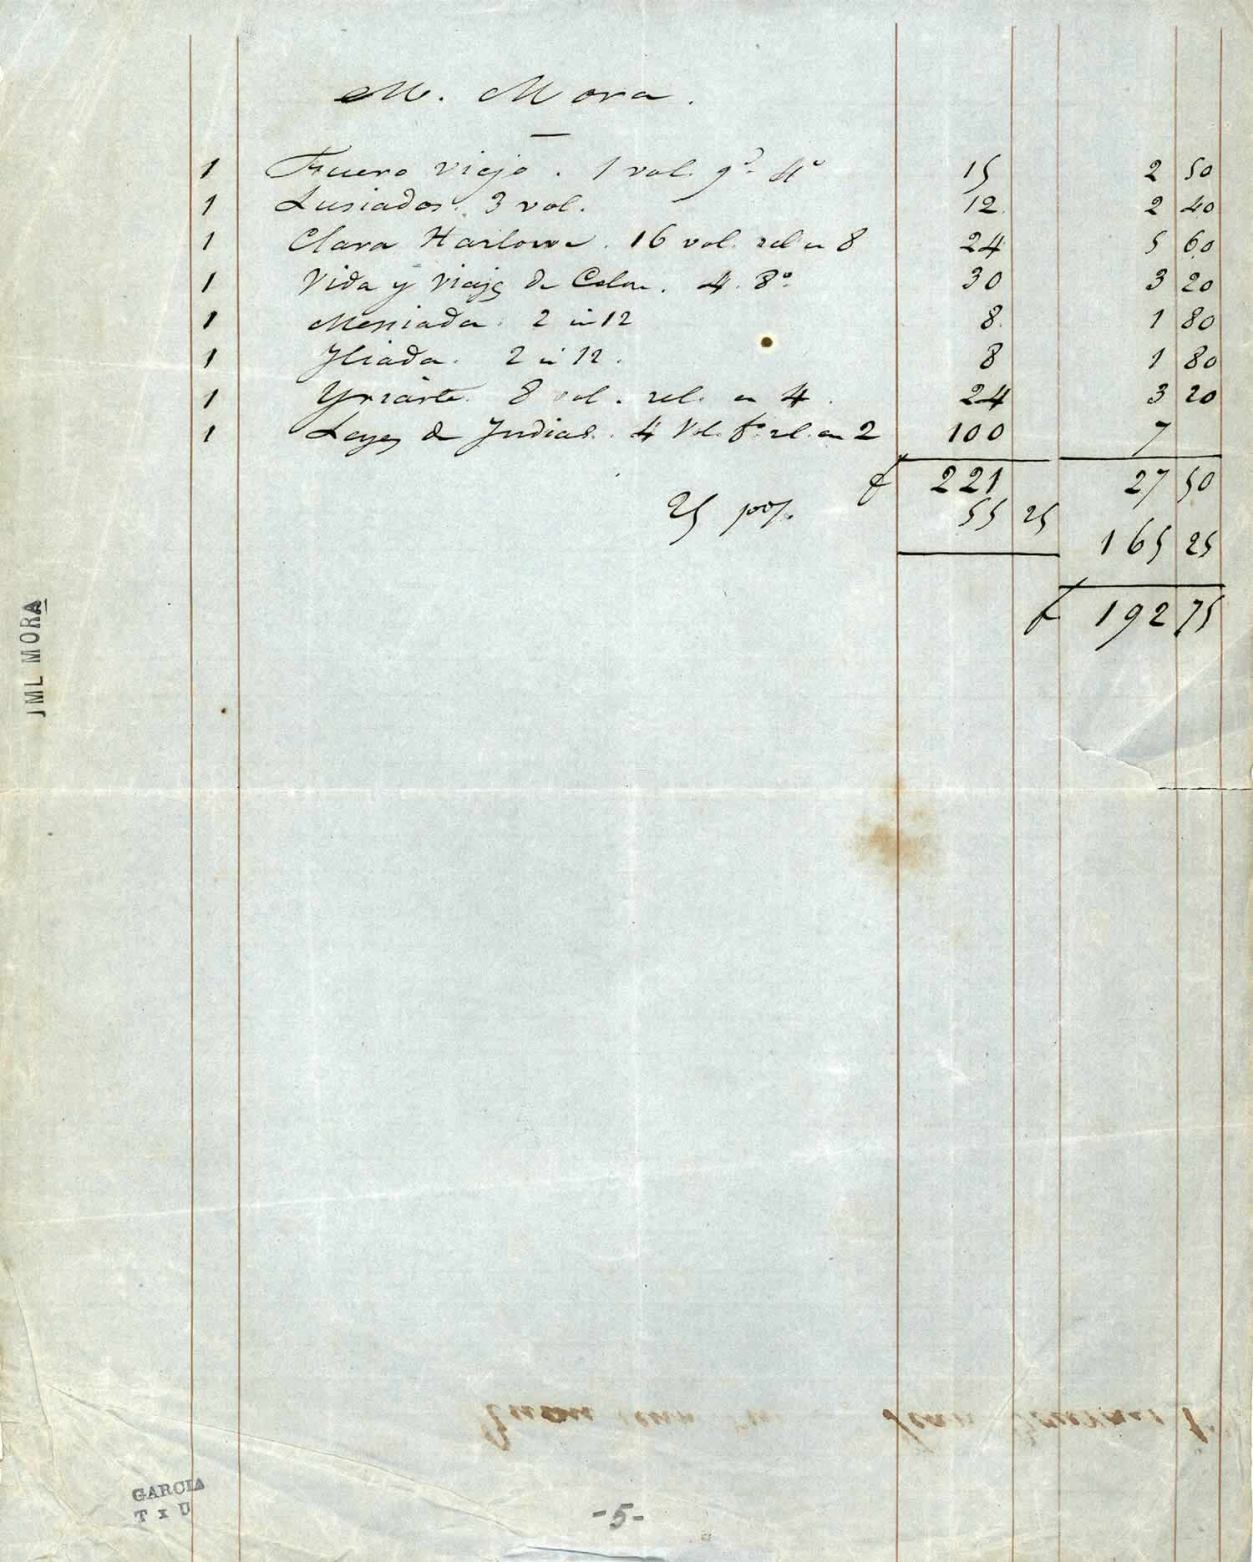 M. Mora.
1 Fuero viejo. 1 vol. gd. 4º 15 2 50
1 Lusiadas. 3 vol. 12 2 40
1 Clara Harlowe. 16 vol. rel en 8 24 5 60
1 Vida y viajes de Colon. 4. 8º 30 3 20
1 Mesiada. 2 in 12 8. 1 80
1 Yliada. 2 in 12. 8 1 80
1 Yriarte. 8 vol. rel. en 4. 24 3 20
1 Leyes de Yndias. 4 Vol. fº rel. en 2 100 7
f 221 27 50
25 p%. 55 25
165 25
f 192 75
JML MORA
GARCIA
T x U
-5-